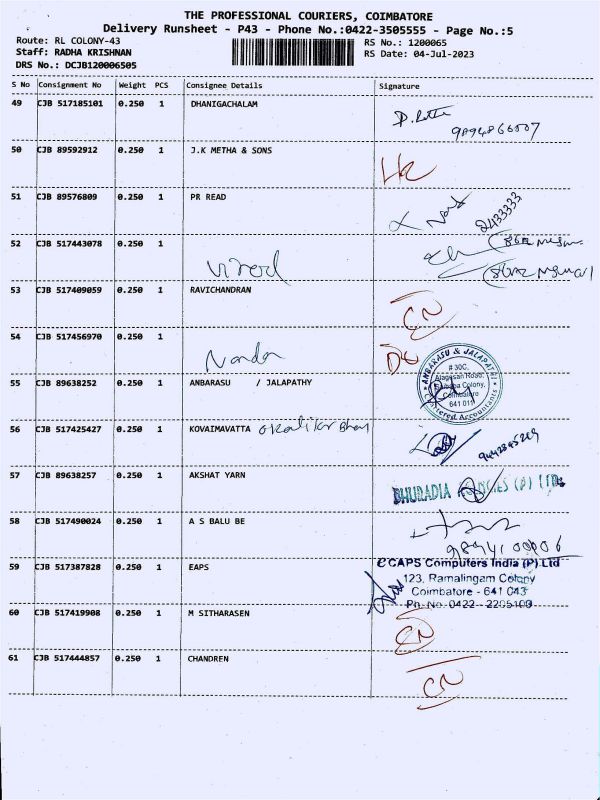 THE PROFESSIONAL COURIERS, COIMBATORE
Delivery Runsheet - P43 - Phone No.:0422-3505555 - Page No.:5
Route: RL COLONY-43
Staff: RADHA KRISHNAN
DRS No.: DCJB120006505
RS No.: 1200065
RS Date: 04-Jul-2023
S No Consignment No Weight PCS Consignee Details Signature
49 CJB 517185101 0.250 1 DHANIGACHALAM
50 CJB 89592912 0.250 1 J.K METHA & SONS
51 CJB 89576809 0.250 1 PR READ
2433333
52 CJB 517443078 0.250 1
Vinod
53 CJB 517409059 0.250 1 RAVICHANDRAN
CN
54 CJB 517456970 0.250 1
Nanda
DC
55 CJB 89638252 0.250 1 ANBARASU / JALAPATHY
ANBARASU & JALAPATHI
# 30C,
Alagesan Road,
Colony,
Coimbatore
641 011
Chartered Accountants
56 CJB 517425427 0.250 1 KOVAIMAVATTA
57 CJB 89638257 0.250 1 AKSHAT YARN
DHURADIA AGENCIES (P) LTD.
58 CJB 517490024 0.250 1 A S BALU BE
59 CJB 517387828 0.250 1 EAPS
eCAPS Computers India (P) Ltd
123, Ramalingam Colony
Coimbatore - 641 043
Ph. No. 0422 - 2205109
60 CJB 517419908 0.250 1 M SITHARASEN
CN
61 CJB 517444857 0.250 1 CHANDREN
CN